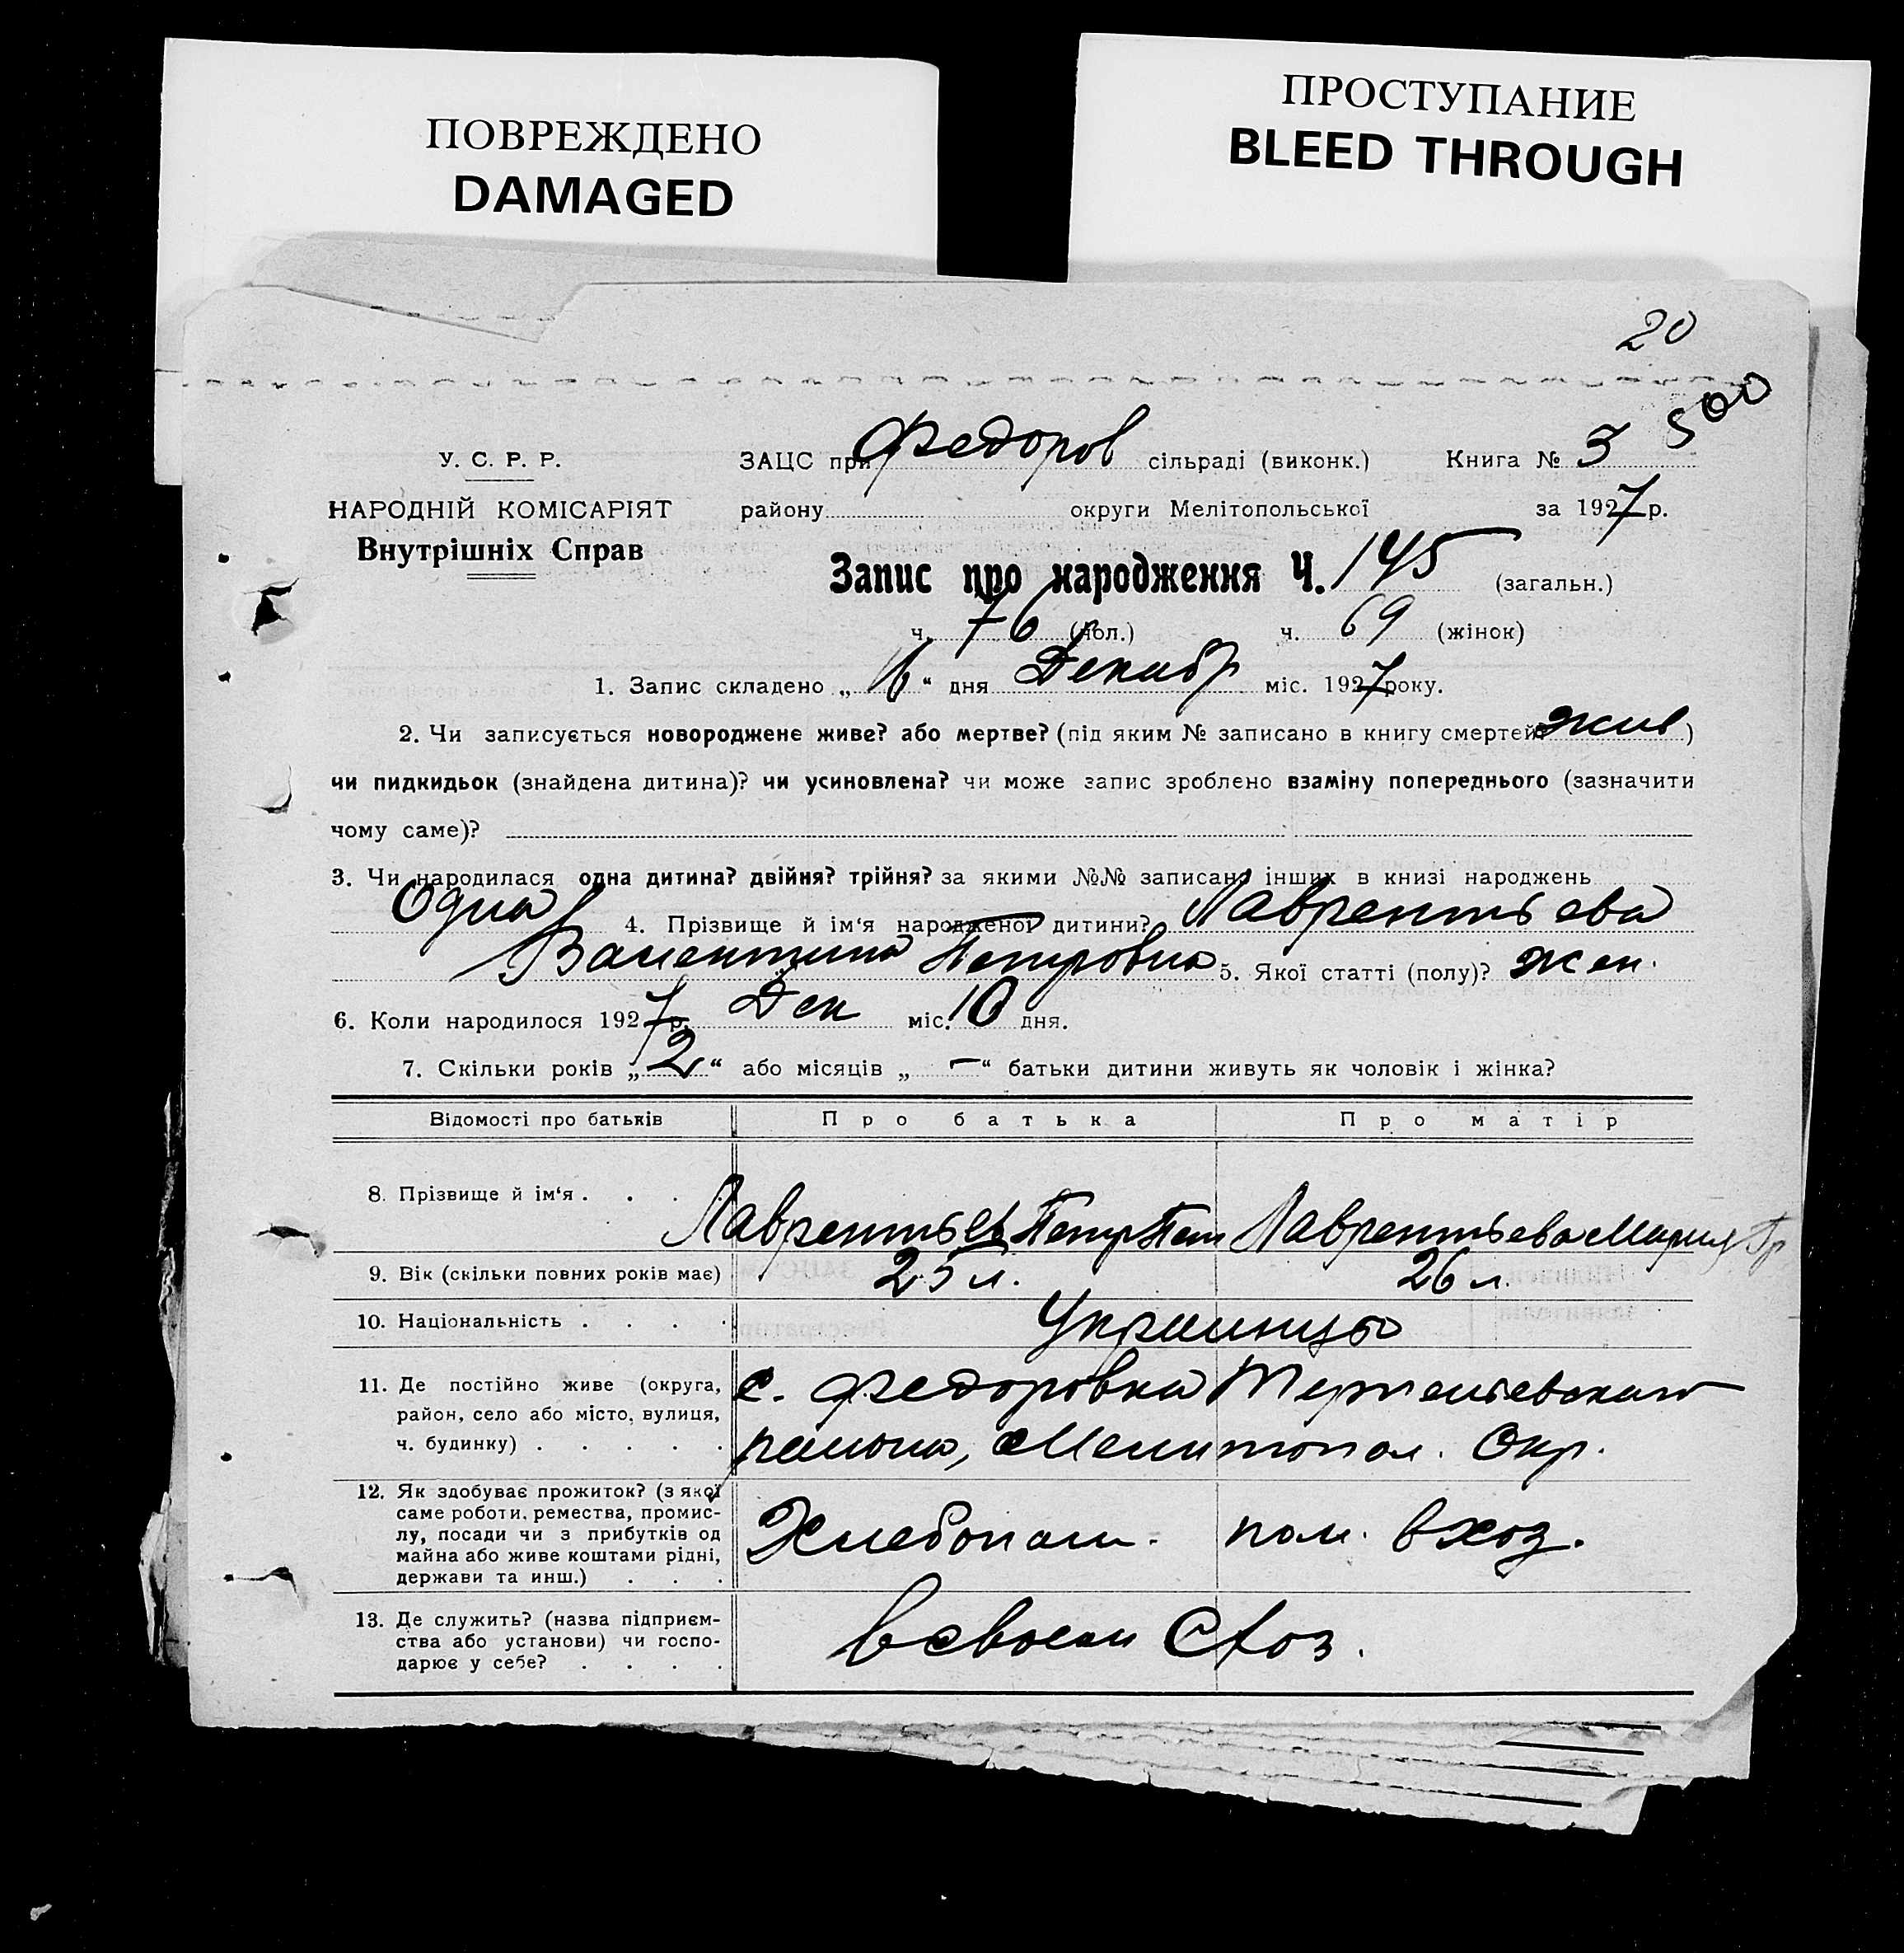 ПОВРЕЖДЕНО
DAMAGED
ПРОСТУПАНИЕ
BLEED THROUGH
20
500
У. С. Р. Р.
ЗАЦС при Федоров сільраді (виконк.) Книга № 3
НАРОДНІЙ КОМІСАРІЯТ
району округи Мелітопольської за 1927 р.
Внутрішніх Справ
Запис про народження Ч. 145 (загальн.)
ч. 76 (чол.) ч. 69 (жінок)
1. Запис складено „ “ дня Декабр міс. 1927 року.
2. Чи записується новороджене живе? або мертве? (під яким № записано в книгу смертей? жив)
чи пидкидьок (знайдена дитина)? чи усиновлена? чи може запис зроблено взаміну попереднього (зазначити
чому саме)?
3. Чи народилася одна дитина? двійня? трійня? за якими №№ записано інших в книзі народжень
Одна 4. Прізвище й ім‘я народженої дитини? Лаврентьева
Валентина Петровна 5. Якої статті (полу)? жен.
6. Коли народилося 1927 р. Дек міс. 10 дня.
7. Скільки років „ 2 “ або місяців „ — “ батьки дитини живуть як чоловік і жінка?
Відомості про батьків Про батька Про матір
8. Прізвище й ім‘я . . . . Лаврентьев Петр Пет Лаврентьева Мария Гр
9. Вік (скільки повних років має) 25 л. 26 л.
10. Національність . . . . Украинцы
11. Де постійно живе (округа,
район, село або місто, вулиця,
ч. будинку) . . . . .
с. Федоровка
района, Мелитопол. Окр.
12. Як здобуває прожиток? (з якої
саме роботи, ремества, промис-
лу, посади чи з прибутків од
майна або живе коштами рідні,
держави та инш.) . . .
Хлебопаш. пом. в хоз.
13. Де служить? (назва підприєм-
ства або установи) чи госпо-
дарює у себе? . . . .
в своем